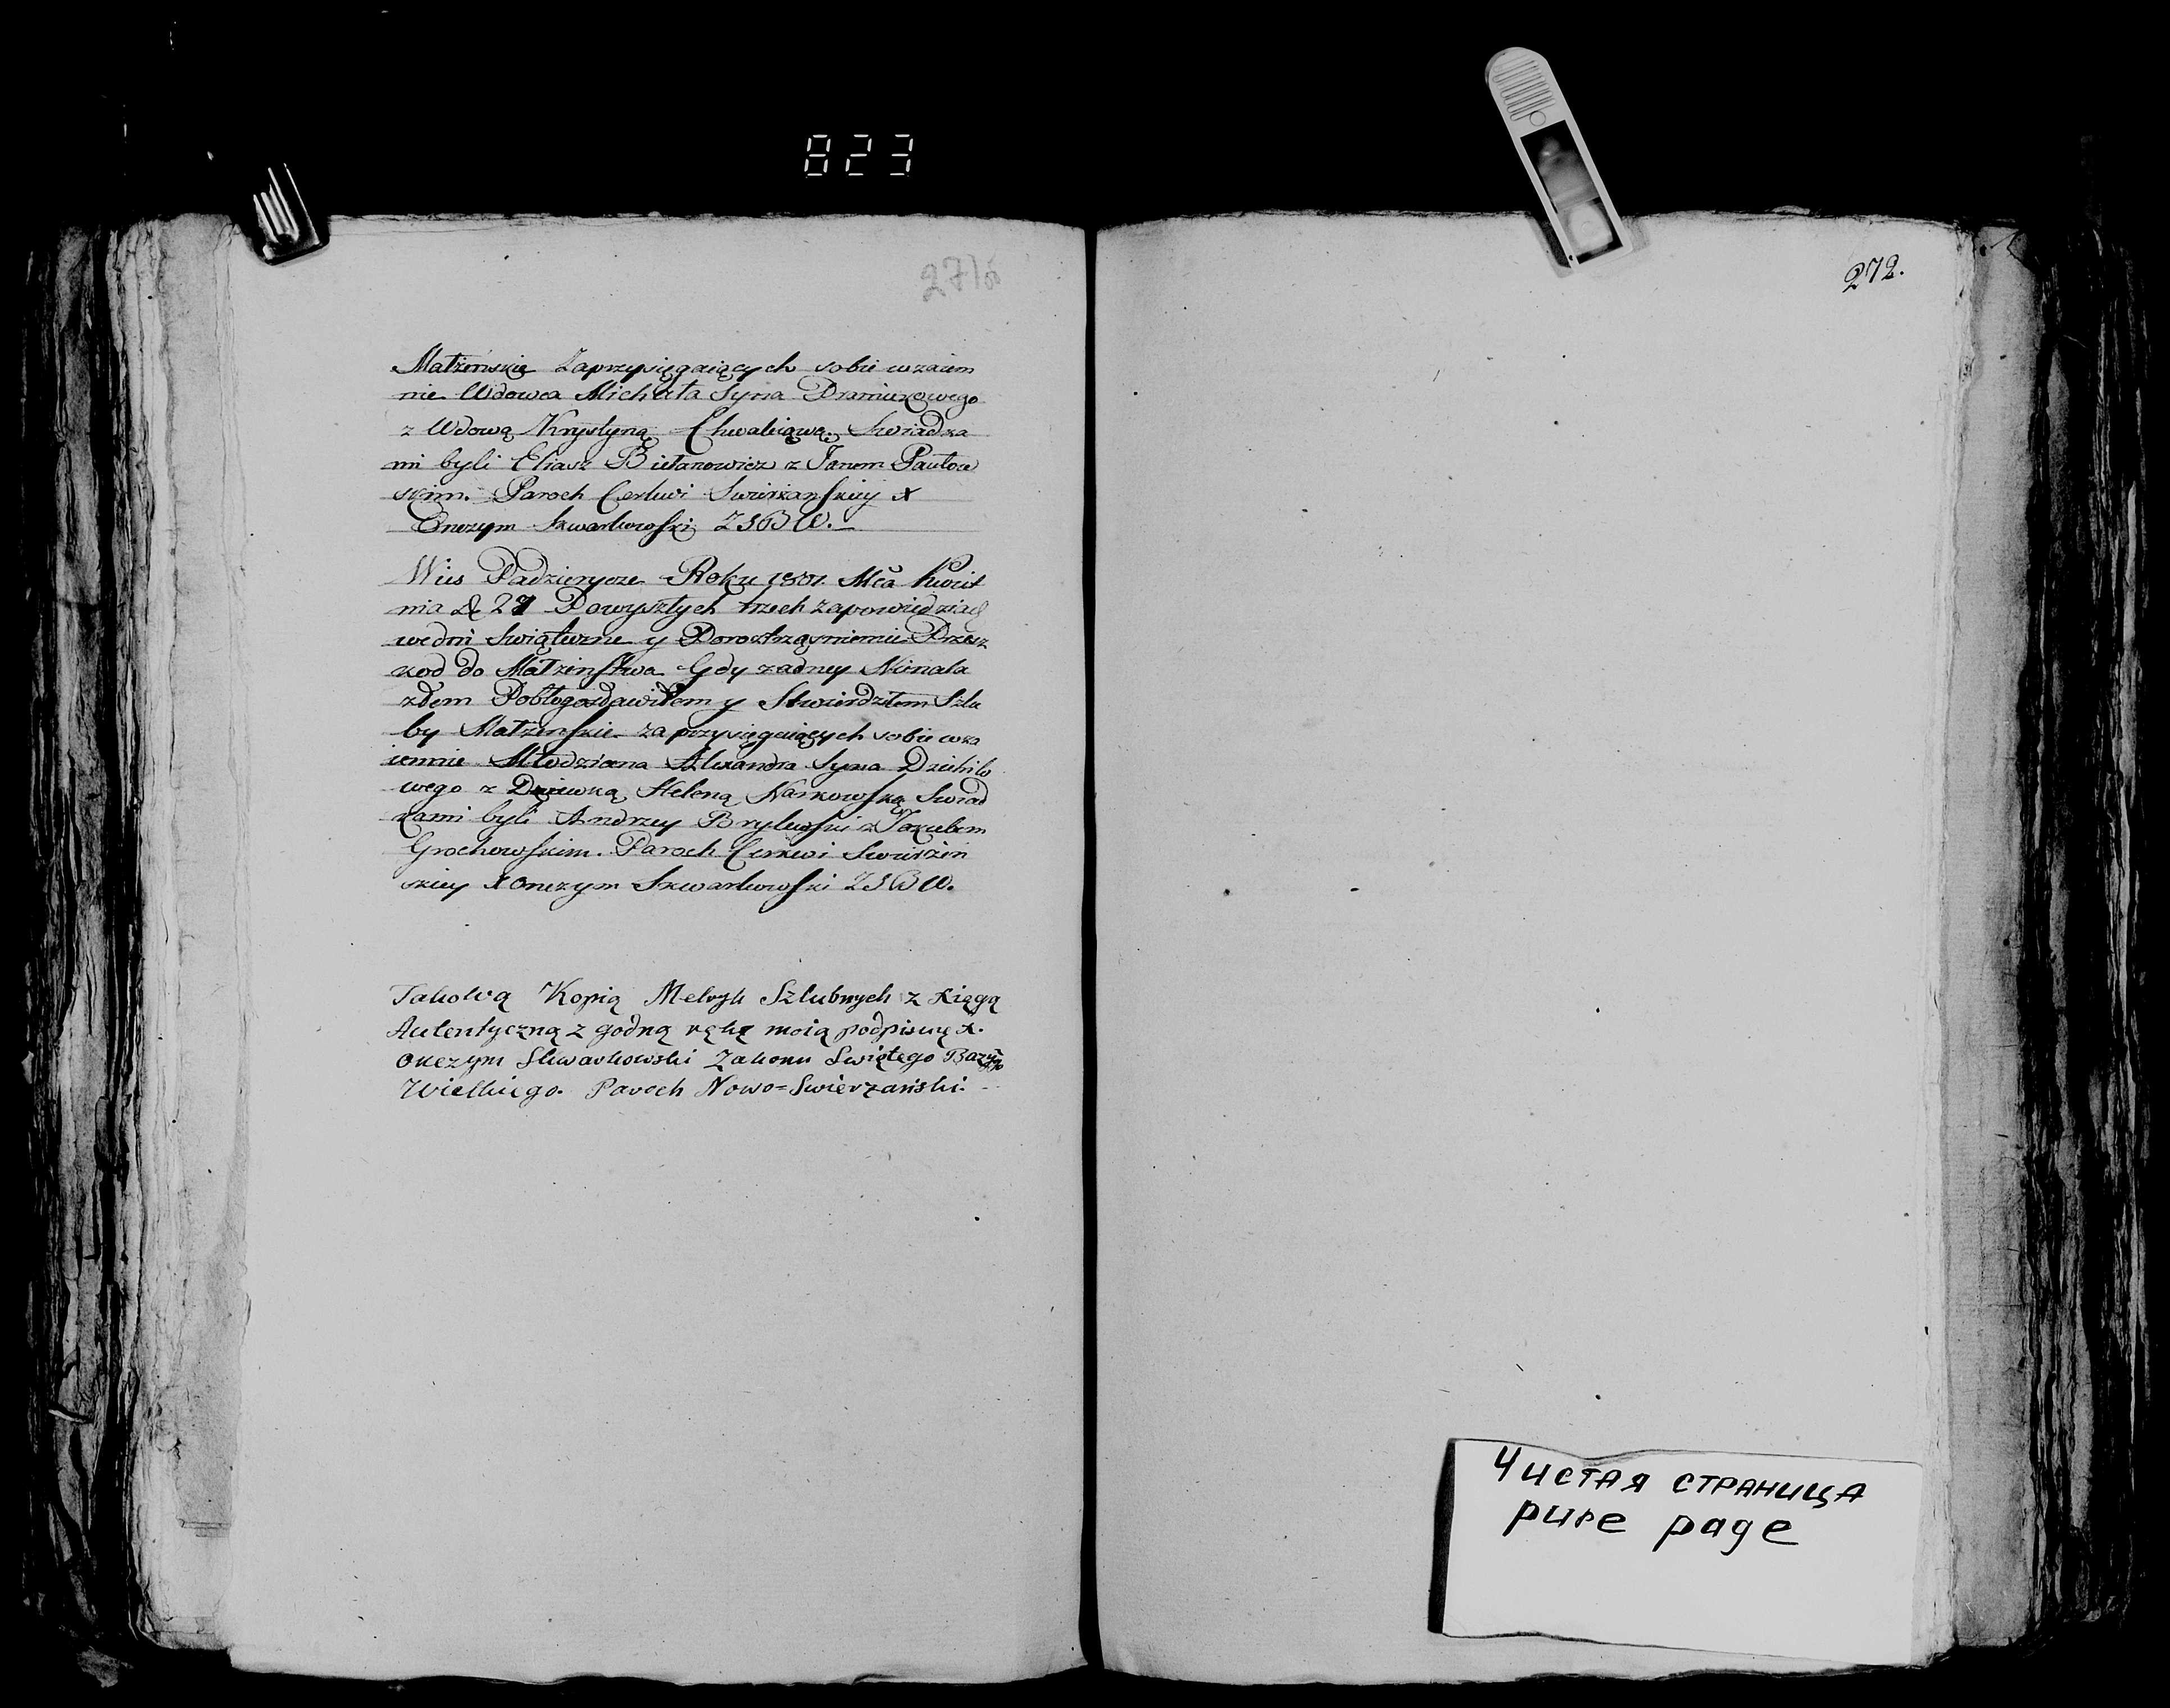 823
271об
272.
Małżenskie Zaprzysięgaiących sobie wzaiem
nie Wdowca Michała Syna Dramiukowego
z Wdową Krystyną Chwalkową. Swiadka
mi byli Eliasz Bielanowicz z Janem Pawlow
skim. Paroch Cerkwi Swierżanskiey X
Onezym Skwarkowski ZSBW.
Wies Padzierycze Roku 1801. Mca Kwiet
nia D. 27 Powyszłych trzech zapowiedziach
wedni Swiąteczne y Poroztrząsnieniu Przesz
kod do Małżenstwa Gdy zadney Nienala
złem Pobłogosławiłem y Stwierdziłem Szlu
by Małżenskie zaprzysięgaiących sobie wza
iemnie Młodziana Alexandra Syna Dzichilo
wego z Dziewką Heleną Narkowską Swiad
kami byli Andrzey Brylewski z Jakubem
Grochowskim. Paroch Cerkwi Swierżen
skiey X Onezym Skwarkowski ZSBW.
Takową Kopią Metryk Szlubnych z Xięgą
Autentyczną zgodną ręką moią podpisuię X.
Onezym Skwarkowski Zakonu Swiętego Bazylego
Wielkiego. Paroch Nowo=Swierzański.
Чистая страница
pure page